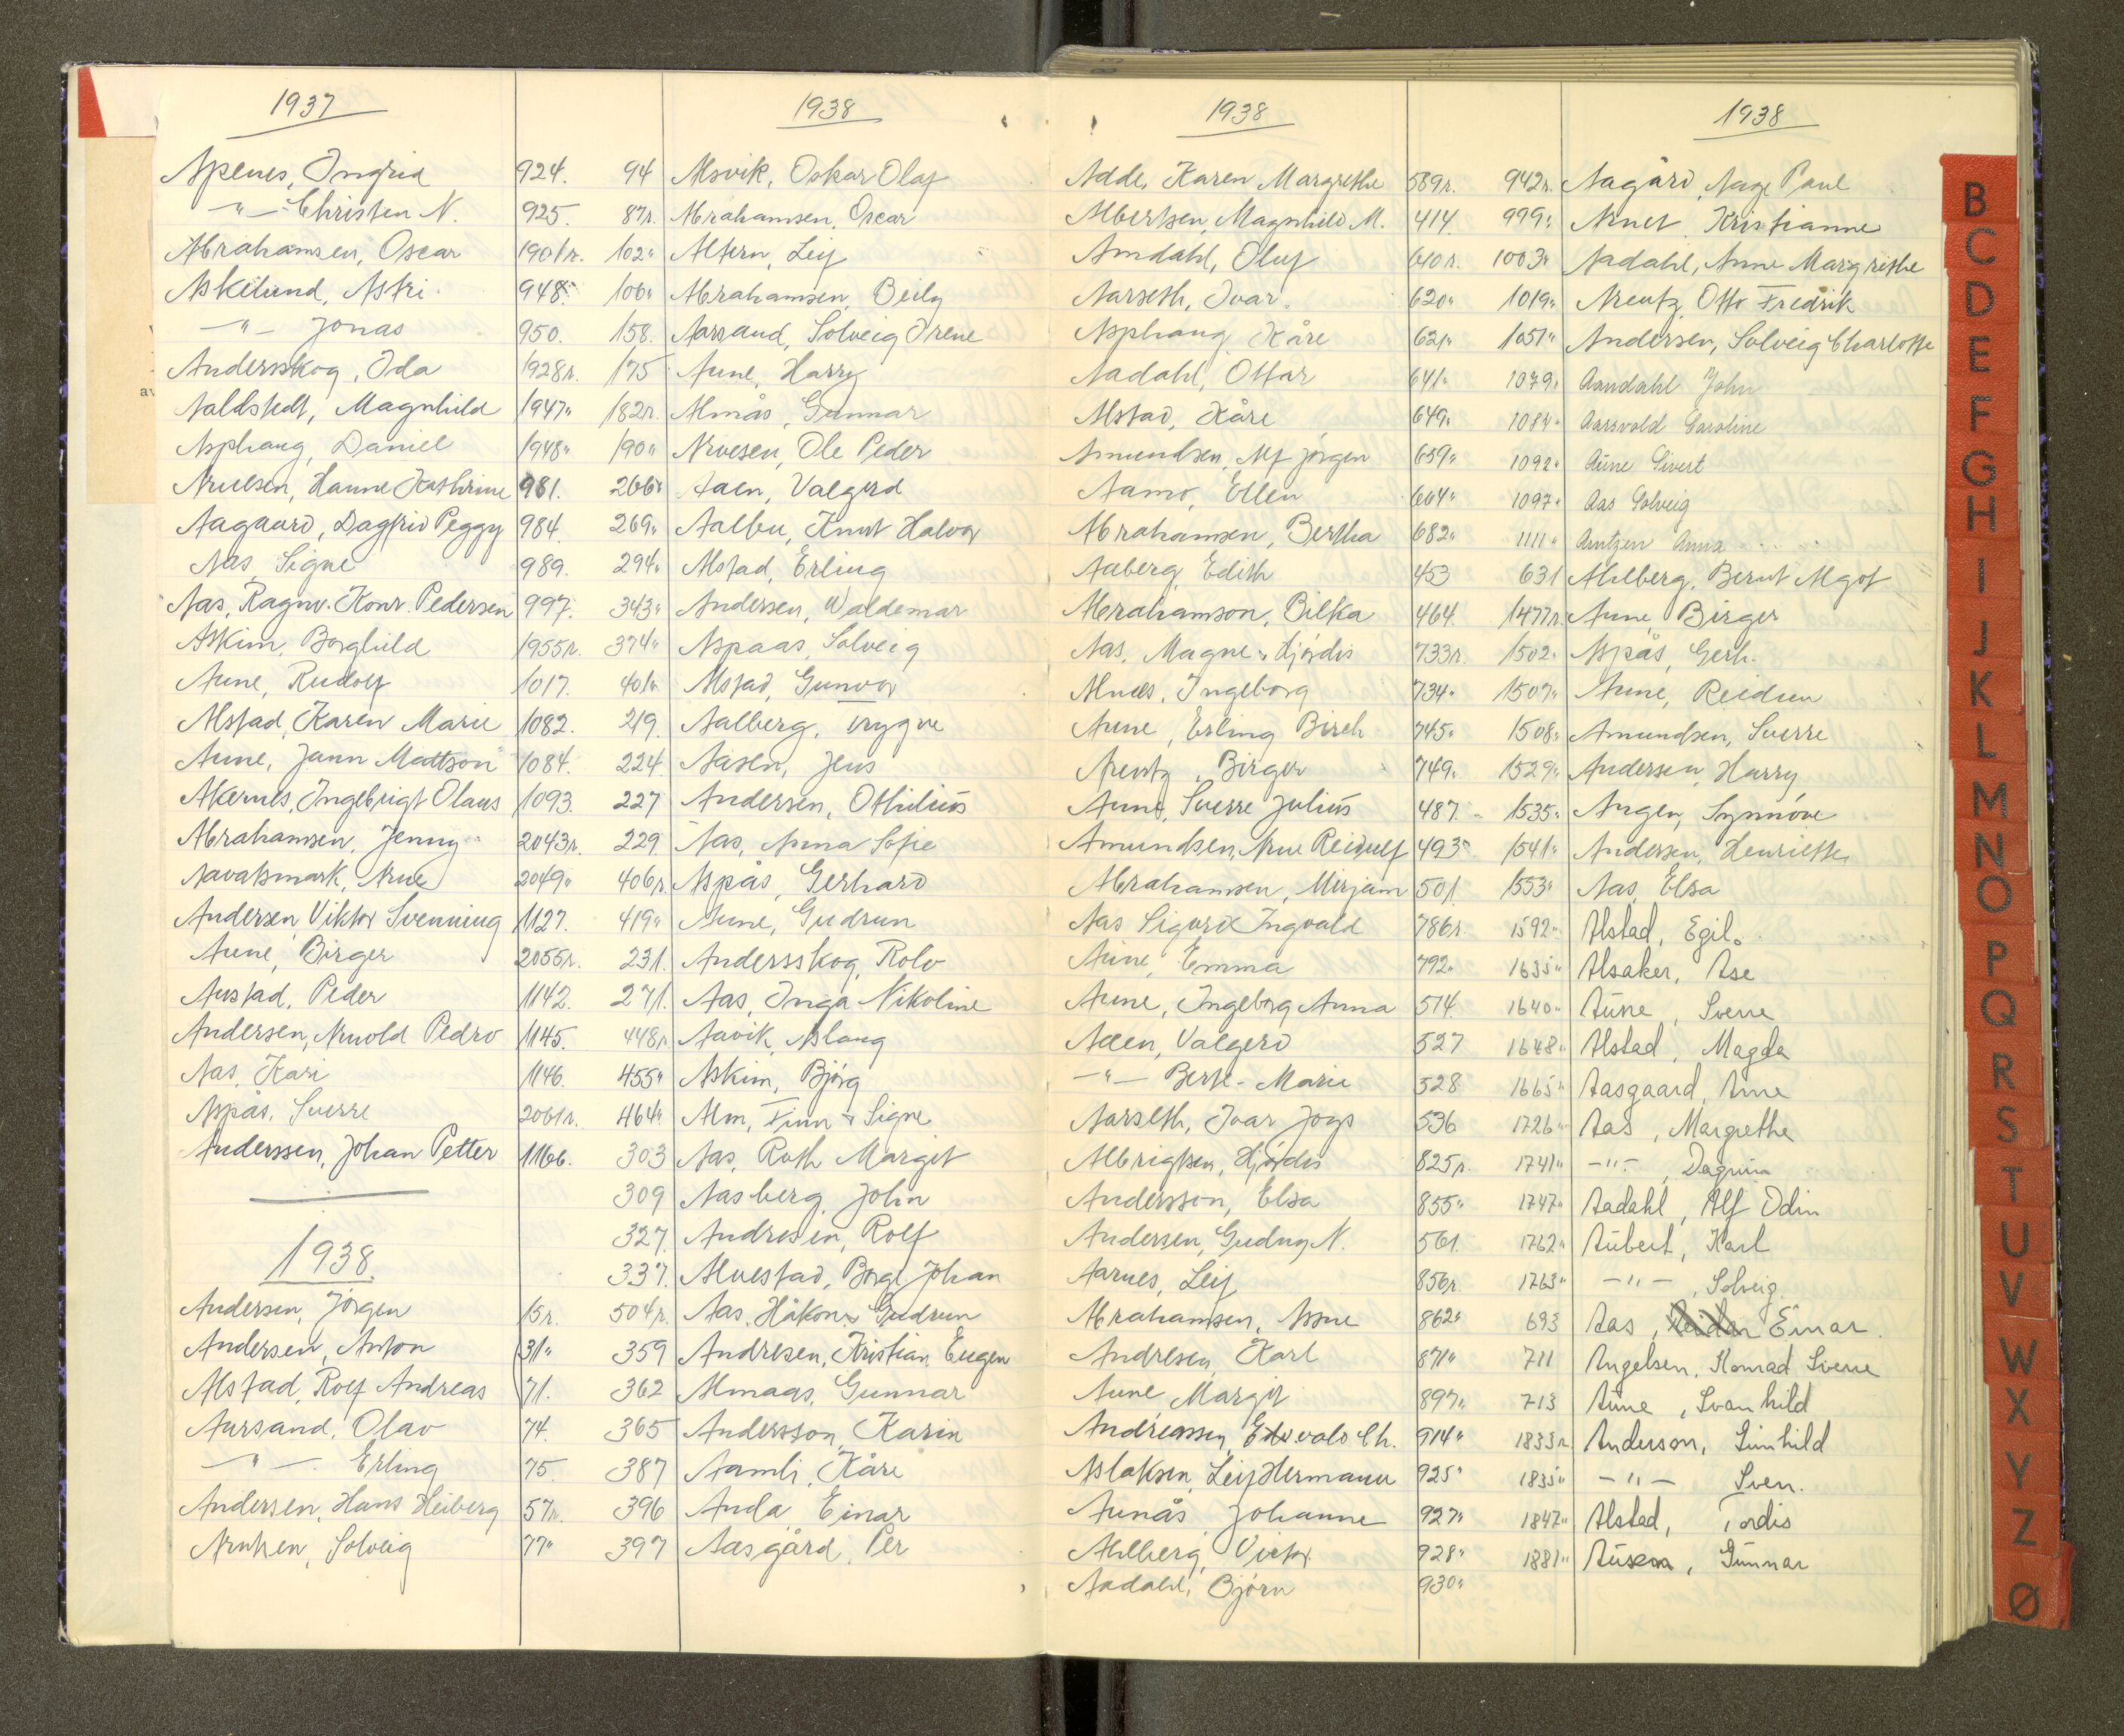 1937
Apenes, Ingrid 924.
—"— Christen N. 925.
Abrahamsen, Oscar 1901r.
Askilund, Astri 948.
—"— Jonas 950.
Andersskog, Ida 1928r.
Aaldstedt, Magnhild 1947"
Asphaug, Daniel 1948"
Hanne Kathrine 981.
Aagaard, Dagfrid Peggy 984.
Aas Signe 989.
Aas, Ragnv. Konr. Pedersen 997.
Askim, Borghild 1955r.
Aune, Rudolf 1017.
Alstad, Karen Marie 1082.
Aune, Jann Mattson 1084.
Akernes, Ingebrigt Olaus 1093.
Abrahamsen, Jenny 2043r.
Aavatsmark, Arne 2049"
Andersen, Viktor Svenning 1127.
Aune, Birger 2055r.
Austad, Peder 1142.
Andersen, Arnold Pedro 1145.
Aas, Kari 1146.
Aspås, Sverre 2061r.
Anderssen, Johan Petter 1166.
1938.
Andersen, Jørgen 15r.
Andersen, Anton 31"
Alstad, Rolf Andreas 71.
Aarsand, Olav 74.
—"— Erling 75.
Andersen, Hans Heiberg 57r.
Arntzen, Solveig 77"
1938
94 Alsvik, Oskar Olaf
87r. Abrahamsen, Oscar
102" Altern, Leif
106" Abrahamsen, Beily
158. Aarsand, Solveig Irene
175 Aune, Harry
182r. Almås, Gunnar
190" Arvesen, Ole Peder
266" Aaen, Valgerd
269" Aalbu, Knut Halvor
294" Alstad, Erling
343" Andersen, Waldemar
374" Aspaas, Solveig
401" Alstad, Gunvor
219. Aalberg, Trygve
224 Aasen, Jens
227 Andersen, Othilius
229 Aas, Anna Sofie
406r. Aspås, Gerhard
419" Aune, Gudrun
231. Andersskog, Rolv
271. Aas, Inga Nikoline
448r. Aavik, Aslaug
455" Askim, Bjørg
464" Alm, Finn & Signe
303 Aas, Ruth Margit
309 Aasberg, John
327. Andresen, Rolf
337. Alvestad, Borge Johan
504r. Aas, Håkon & Gudrun
359 Andresen, Kristian Eugen
362 Almaas, Gunnar
365 Andersson, Karin
387 Aamli, Kåre
396 Anda, Einar
397 Aasgård, Per
1938
Adde, Karen Margrethe 589r.
Albertsen, Magnhild M. 414.
Amdahl, Oluf 610r.
Aarseth, Ivar. 620"
Asphaug, Kåre 621"
Aadahl, Ottar 641"
Alstad, Kåre 649"
Amundsen, Alf Jørgen 659"
Aamo, Ellen 664"
Abrahamsen, Bertha 682"
Aaberg, Edith 453
Abrahamson, Bilka 464.
Aas, Magne & Hjørdis 733r.
Alnæs, Ingeborg 734"
Aune, Erling Birch 745"
Arentz, Birger 749"
Aune, Sverre Julius 487.
Amundsen, Arne Reidulf 493
Abrahamsen, Mirjam 501
Aas Sigurd Ingvald 786r.
Aune, Emma 792"
Aune, Ingeborg Anna 514.
Aaen, Valgerd 527
—"— Berte-Marie 528
Aarseth, Ivar Jogs 536
Albrigtsen, Hjørdis 825r.
Andersson, Elsa 855"
Andersen, Gudny N. 561.
Aarnes, Leif 856r.
Abrahamsen, Asne 862"
Andresen, Karl 871"
Aune, Margit 897"
Andreassen, Edevald Ch. 914"
Aslaksen, Leif Hermann 925"
Aunås, Johanne 927"
Ahlberg, Victor 928"
Aadahl, Bjørn 930"
1938
942r. Aagård, Aage Paul
999" Kristianne
1003" Aadahl, Anne Margrethe
1019" Arentz, Otto Fredrik
1051" Andersen, Solveig Charlotte
1079" Aandahl John
1084" Aarsvold Caroline
1092" Aune Sivert
1097" Aas Solveig
1111" Arntzen Anna
631 Ahlberg, Bernt Algot
1477r. Aune, Birger
1502" Aspås, Gerh.
1507" Aune, Reidun
1508" Amundsen, Sverre
1529" Andersen, Harry
1535" Angen, Synnøve
1541" Andersen, Henriette
1553" Aas, Elsa
1592" Alstad, Egil.
1635" Alsaker, Åse
1640" Aune, Sverre
1648" Alstad, Magda
1665" Aasgaard, Arne
1726" Aas, Margrethe
1741" —"—, Dagmar
1747" Aadahl, Alf Odin
1762" Aubert, Karl
1763" —"—, Solveig.
693 Aas, Einar.
711 Angelsen, Konrad Sverre
713 Aune, Svanhild
1833r. Anderson, Gunhild
1835" —"— Sven.
1847" Alstad, Tordis
1881" Gunnar
B
C
D
E
F
G
H
I
J
K
L
M
N
O
P
Q
R
S
T
U
V
W
X
Y
Z
Ø